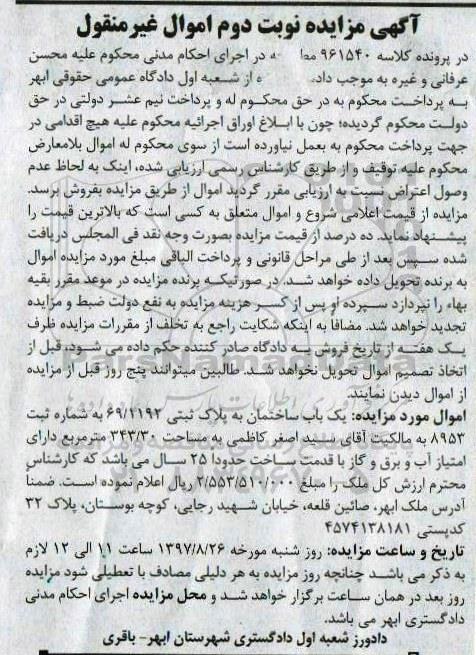 آگهی مزایده نوبت دوم اموال غیرمنقول
در پرونده کلاسه ۹۶۱۵۴۰ در اجرای احکام مدنی محکوم علیه محسن
عرفانی و غیره به موجب از شعبه اول دادگاه عمومی حقوقی ابهر
به پرداخت محکوم به در حق محکوم له و پرداخت نیم عشر دولتی در حق
دولت محکوم گردیده؛ چون با ابلاغ اوراق اجرائیه محکوم علیه هیچ اقدامی در
جهت پرداخت محکوم به بعمل نیاورده است از سوی محکوم له اموال بلامعارض
محکوم علیه توقیف و از طریق کارشناس رسمی ارزیابی شده، اینک به لحاظ عدم
وصول اعتراض نسبت به ارزیابی مقرر گردید اموال از طریق مزایده بفروش برسد.
مزایده از قیمت اعلامی شروع و اموال متعلق به کسی است که بالاترین قیمت را
پیشنهاد نماید. ده درصد از قیمت مزایده بصورت وجه نقد فی المجلس دریافت
شده سپس بعد از طی مراحل قانونی و پرداخت الباقی مبلغ مورد مزایده اموال
به برنده تحویل داده خواهد شد. در صورتیکه برنده مزایده در موعد مقرر بقیه
بهاء را نپردازد سپرده او پس از کسر هزینه مزایده به نفع دولت ضبط و مزایده
تجدید خواهد شد. مضافاً به اینکه شکایت راجع به تخلف از مقررات مزایده ظرف
یک هفته از تاریخ فروش به دادگاه صادر کننده حکم داده می شود، قبل از
اتخاذ تصمیم اموال تحویل نخواهد شد. طالبین میتوانند پنج روز قبل از مزایده
از اموال دیدن نمایند.
اموال مورد مزایده: یک باب ساختمان به پلاک ثبتی ۶۹/۱۱۹۲ به شماره ثبت
۸۹۵۳ به مالکیت آقای سید اصغر کاظمی به مساحت ۳۴۳/۳۰ مترمربع دارای
امتیاز آب و برق و گاز با قدمت ساخت حدودا ۲۵ سال می باشد که کارشناس
محترم ارزش کل ملک را مبلغ ۲/۵۵۳/۵۱۰/۰۰۰ ریال اعلام نموده است. ضمنا
آدرس ملک ابهر، صائین قلعه، خیابان شهید رجایی، کوچه بوستان، پلاک ۳۲
کدپستی ۴۵۷۴۱۳۸۱۸۱
تاریخ و ساعت مزایده: روز شنبه مورخه ۱۳۹۷/۸/۲۶ ساعت ۱۱ الی ۱۲ لازم
به ذکر می باشد چنانچه روز مزایده به هر دلیلی مصادف با تعطیلی شود مزایده
روز بعد در همان ساعت برگزار خواهد شد و محل مزایده اجرای احکام مدنی
دادگستری ابهر می باشد.
دادورز شعبه اول دادگستری شهرستان ابهر- باقری